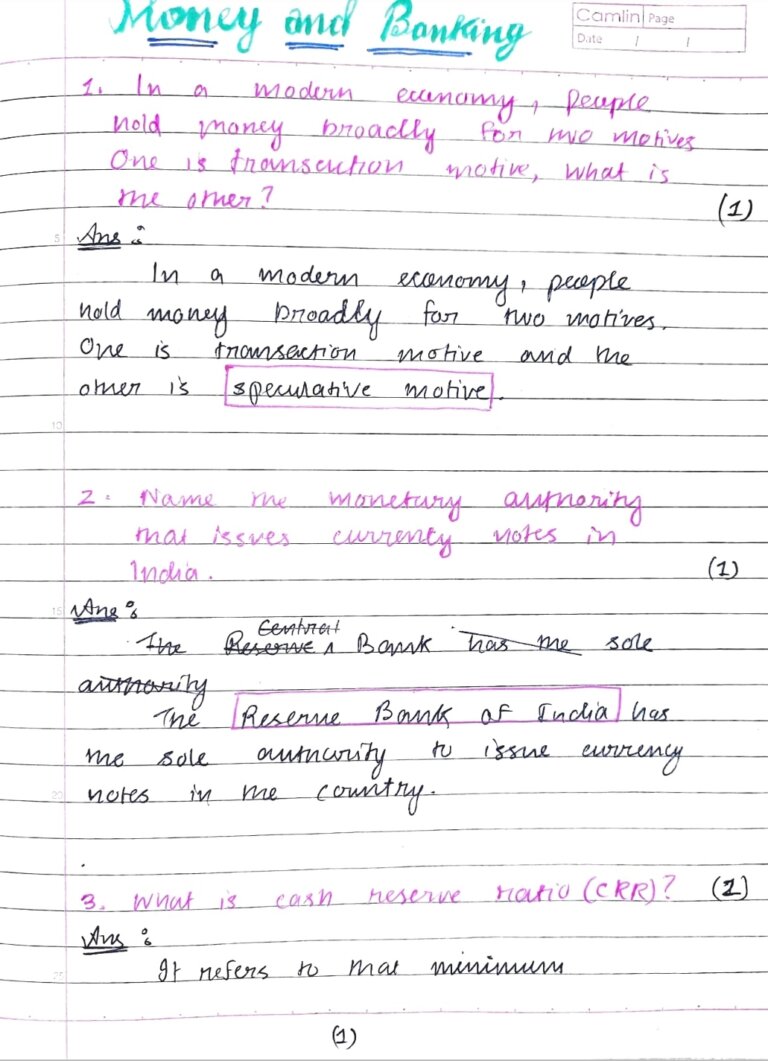 Money and Banking
Camlin Page
Date / /
1. In a modern economy, people
hold money broadly for two motives
One is transaction motive, what is
the other?
(1)
Ans :
In a modern economy, people
hold money broadly for two motives.
One is transaction motive and the
other is speculative motive.
2. Name the monetary authority
that issues currency notes in
India.
(1)
Ans :
Central
The Reserve ∧ Bank has the sole
authority
The Reserve Bank of India has
the sole authority to issue currency
notes in the country.
3. What is cash reserve ratio (CRR)? (1)
Ans :
It refers to that minimum
(1)
5
10
15
20
25